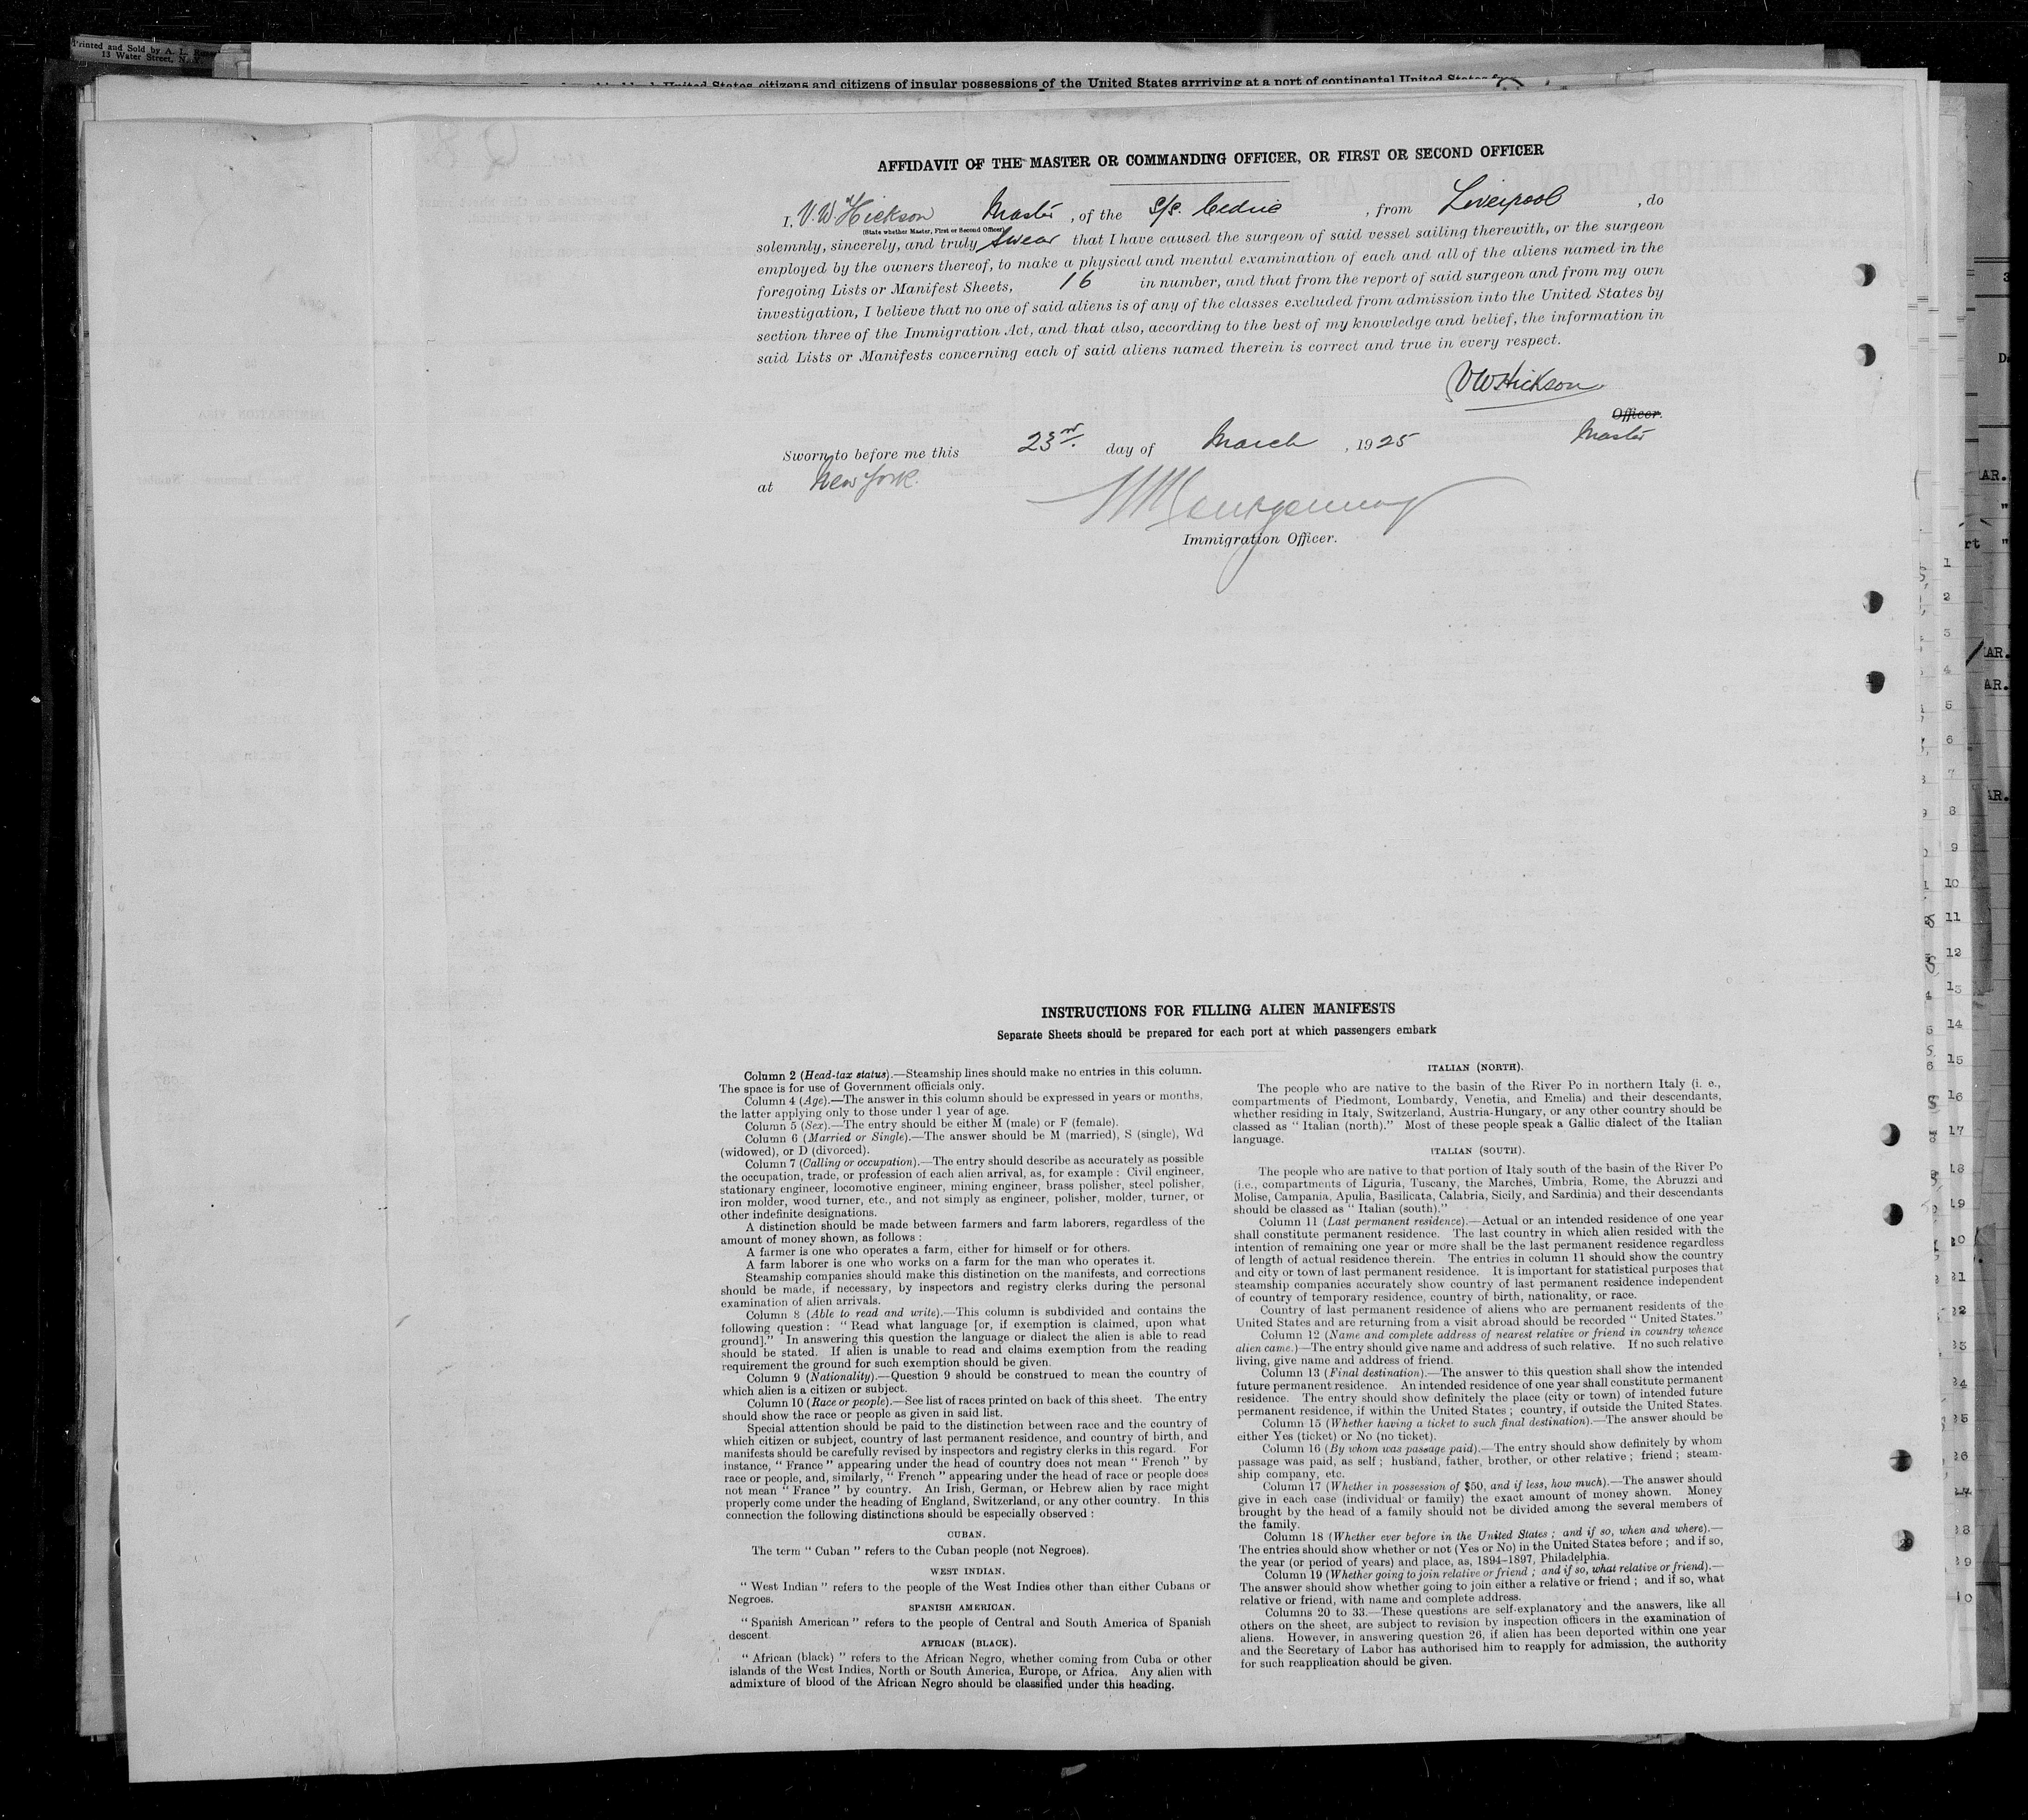 Printed and Sold by A. L.
13 Water Street, N.Y.
United States citizens and citizens of insular possessions of the United States arrriving at a port of continental United States
AFFIDAVIT OF THE MASTER OR COMMANDING OFFICER, OR FIRST OR SECOND OFFICER
I, V. W. Hickson Master, of the S/S. Cedric, from Liverpool, do
(State whether Master, First or Second Officer)
solemnly, sincerely, and truly swear that I have caused the surgeon of said vessel sailing therewith, or the surgeon
employed by the owners thereof, to make a physical and mental examination of each and all of the aliens named in the
foregoing Lists or Manifest Sheets, 16 in number, and that from the report of said surgeon and from my own
investigation, I believe that no one of said aliens is of any of the classes excluded from admission into the United States by
section three of the Immigration Act, and that also, according to the best of my knowledge and belief, the information in
said Lists or Manifests concerning each of said aliens named therein is correct and true in every respect.
VWHickson
Officer.
Master
Sworn to before me this 23rd. day of March, 1925
at New York.
Montgomery
Immigration Officer.
INSTRUCTIONS FOR FILLING ALIEN MANIFESTS
Separate Sheets should be prepared for each port at which passengers embark
Column 2 (Head-tax status).—Steamship lines should make no entries in this column.
The space is for use of Government officials only.
Column 4 (Age).—The answer in this column should be expressed in years or months,
the latter applying only to those under 1 year of age.
Column 5 (Sex).—The entry should be either M (male) or F (female).
Column 6 (Married or Single).—The answer should be M (married), S (single), Wd
(widowed), or D (divorced).
Column 7 (Calling or occupation).—The entry should describe as accurately as possible
the occupation, trade, or profession of each alien arrival, as, for example : Civil engineer,
stationary engineer, locomotive engineer, mining engineer, brass polisher, steel polisher,
iron molder, wood turner, etc., and not simply as engineer, polisher, molder, turner, or
other indefinite designations.
A distinction should be made between farmers and farm laborers, regardless of the
amount of money shown, as follows :
A farmer is one who operates a farm, either for himself or for others.
A farm laborer is one who works on a farm for the man who operates it.
Steamship companies should make this distinction on the manifests, and corrections
should be made, if necessary, by inspectors and registry clerks during the personal
examination of alien arrivals.
Column 8 (Able to read and write).—This column is subdivided and contains the
following question : " Read what language [or, if exemption is claimed, upon what
ground]." In answering this question the language or dialect the alien is able to read
should be stated. If alien is unable to read and claims exemption from the reading
requirement the ground for such exemption should be given.
Column 9 (Nationality).—Question 9 should be construed to mean the country of
which alien is a citizen or subject.
Column 10 (Race or people).—See list of races printed on back of this sheet. The entry
should show the race or people as given in said list.
Special attention should be paid to the distinction between race and the country of
which citizen or subject, country of last permanent residence, and country of birth, and
manifests should be carefully revised by inspectors and registry clerks in this regard. For
instance, " France " appearing under the head of country does not mean " French " by
race or people, and, similarly, " French " appearing under the head of race or people does
not mean " France " by country. An Irish, German, or Hebrew alien by race might
properly come under the heading of England, Switzerland, or any other country. In this
connection the following distinctions should be especially observed :
CUBAN.
The term " Cuban " refers to the Cuban people (not Negroes).
WEST INDIAN.
" West Indian " refers to the people of the West Indies other than either Cubans or
Negroes.
SPANISH AMERICAN.
" Spanish American " refers to the people of Central and South America of Spanish
descent
AFRICAN (BLACK).
" African (black) " refers to the African Negro, whether coming from Cuba or other
islands of the West Indies, North or South America, Europe, or Africa. Any alien with
admixture of blood of the African Negro should be classified under this heading.
ITALIAN (NORTH).
The people who are native to the basin of the River Po in northern Italy (i. e.,
compartments of Piedmont, Lombardy, Venetia, and Emelia) and their descendants,
whether residing in Italy, Switzerland, Austria-Hungary, or any other country should be
classed as " Italian (north)." Most of these people speak a Gallic dialect of the Italian
language.
ITALIAN (SOUTH).
The people who are native to that portion of Italy south of the basin of the River Po
(i.e., compartments of Liguria, Tuscany, the Marches, Umbria, Rome, the Abruzzi and
Molise, Campania, Apulia, Basilicata, Calabria, Sicily, and Sardinia) and their descendants
should be classed as " Italian (south)."
Column 11 (Last permanent residence).—Actual or an intended residence of one year
shall constitute permanent residence. The last country in which alien resided with the
intention of remaining one year or more shall be the last permanent residence regardless
of length of actual residence therein. The entries in column 11 should show the country
and city or town of last permanent residence. It is important for statistical purposes that
steamship companies accurately show country of last permanent residence independent
of country of temporary residence, country of birth, nationality, or race.
Country of last permanent residence of aliens who are permanent residents of the
United States and are returning from a visit abroad should be recorded " United States."
Column 12 (Name and complete address of nearest relative or friend in country whence
alien came.)—The entry should give name and address of such relative. If no such relative
living, give name and address of friend.
Column 13 (Final destination).—The answer to this question shall show the intended
future permanent residence. An intended residence of one year shall constitute permanent
residence. The entry should show definitely the place (city or town) of intended future
permanent residence, if within the United States ; country, if outside the United States.
Column 15 (Whether having a ticket to such final destination).—The answer should be
either Yes (ticket) or No (no ticket).
Column 16 (By whom was passage paid).—The entry should show definitely by whom
passage was paid, as self ; husband, father, brother, or other relative ; friend ; steam-
ship company, etc.
Column 17 (Whether in possession of $50, and if less, how much).—The answer should
give in each case (individual or family) the exact amount of money shown. Money
brought by the head of a family should not be divided among the several members of
the family.
Column 18 (Whether ever before in the United States ; and if so, when and where).—
The entries should show whether or not (Yes or No) in the United States before ; and if so,
the year (or period of years) and place, as, 1894–1897, Philadelphia.
Column 19 (Whether going to join relative or friend ; and if so, what relative or friend).—
The answer should show whether going to join either a relative or friend ; and if so, what
relative or friend, with name and complete address.
Columns 20 to 33.—These questions are self-explanatory and the answers, like all
others on the sheet, are subject to revision by inspection officers in the examination of
aliens. However, in answering question 26, if alien has been deported within one year
and the Secretary of Labor has authorised him to reapply for admission, the authority
for such reapplication should be given.
1
2
3
4
5
6
7
8
9
10
11
12
13
14
15
16
17
18
19
20
21
22